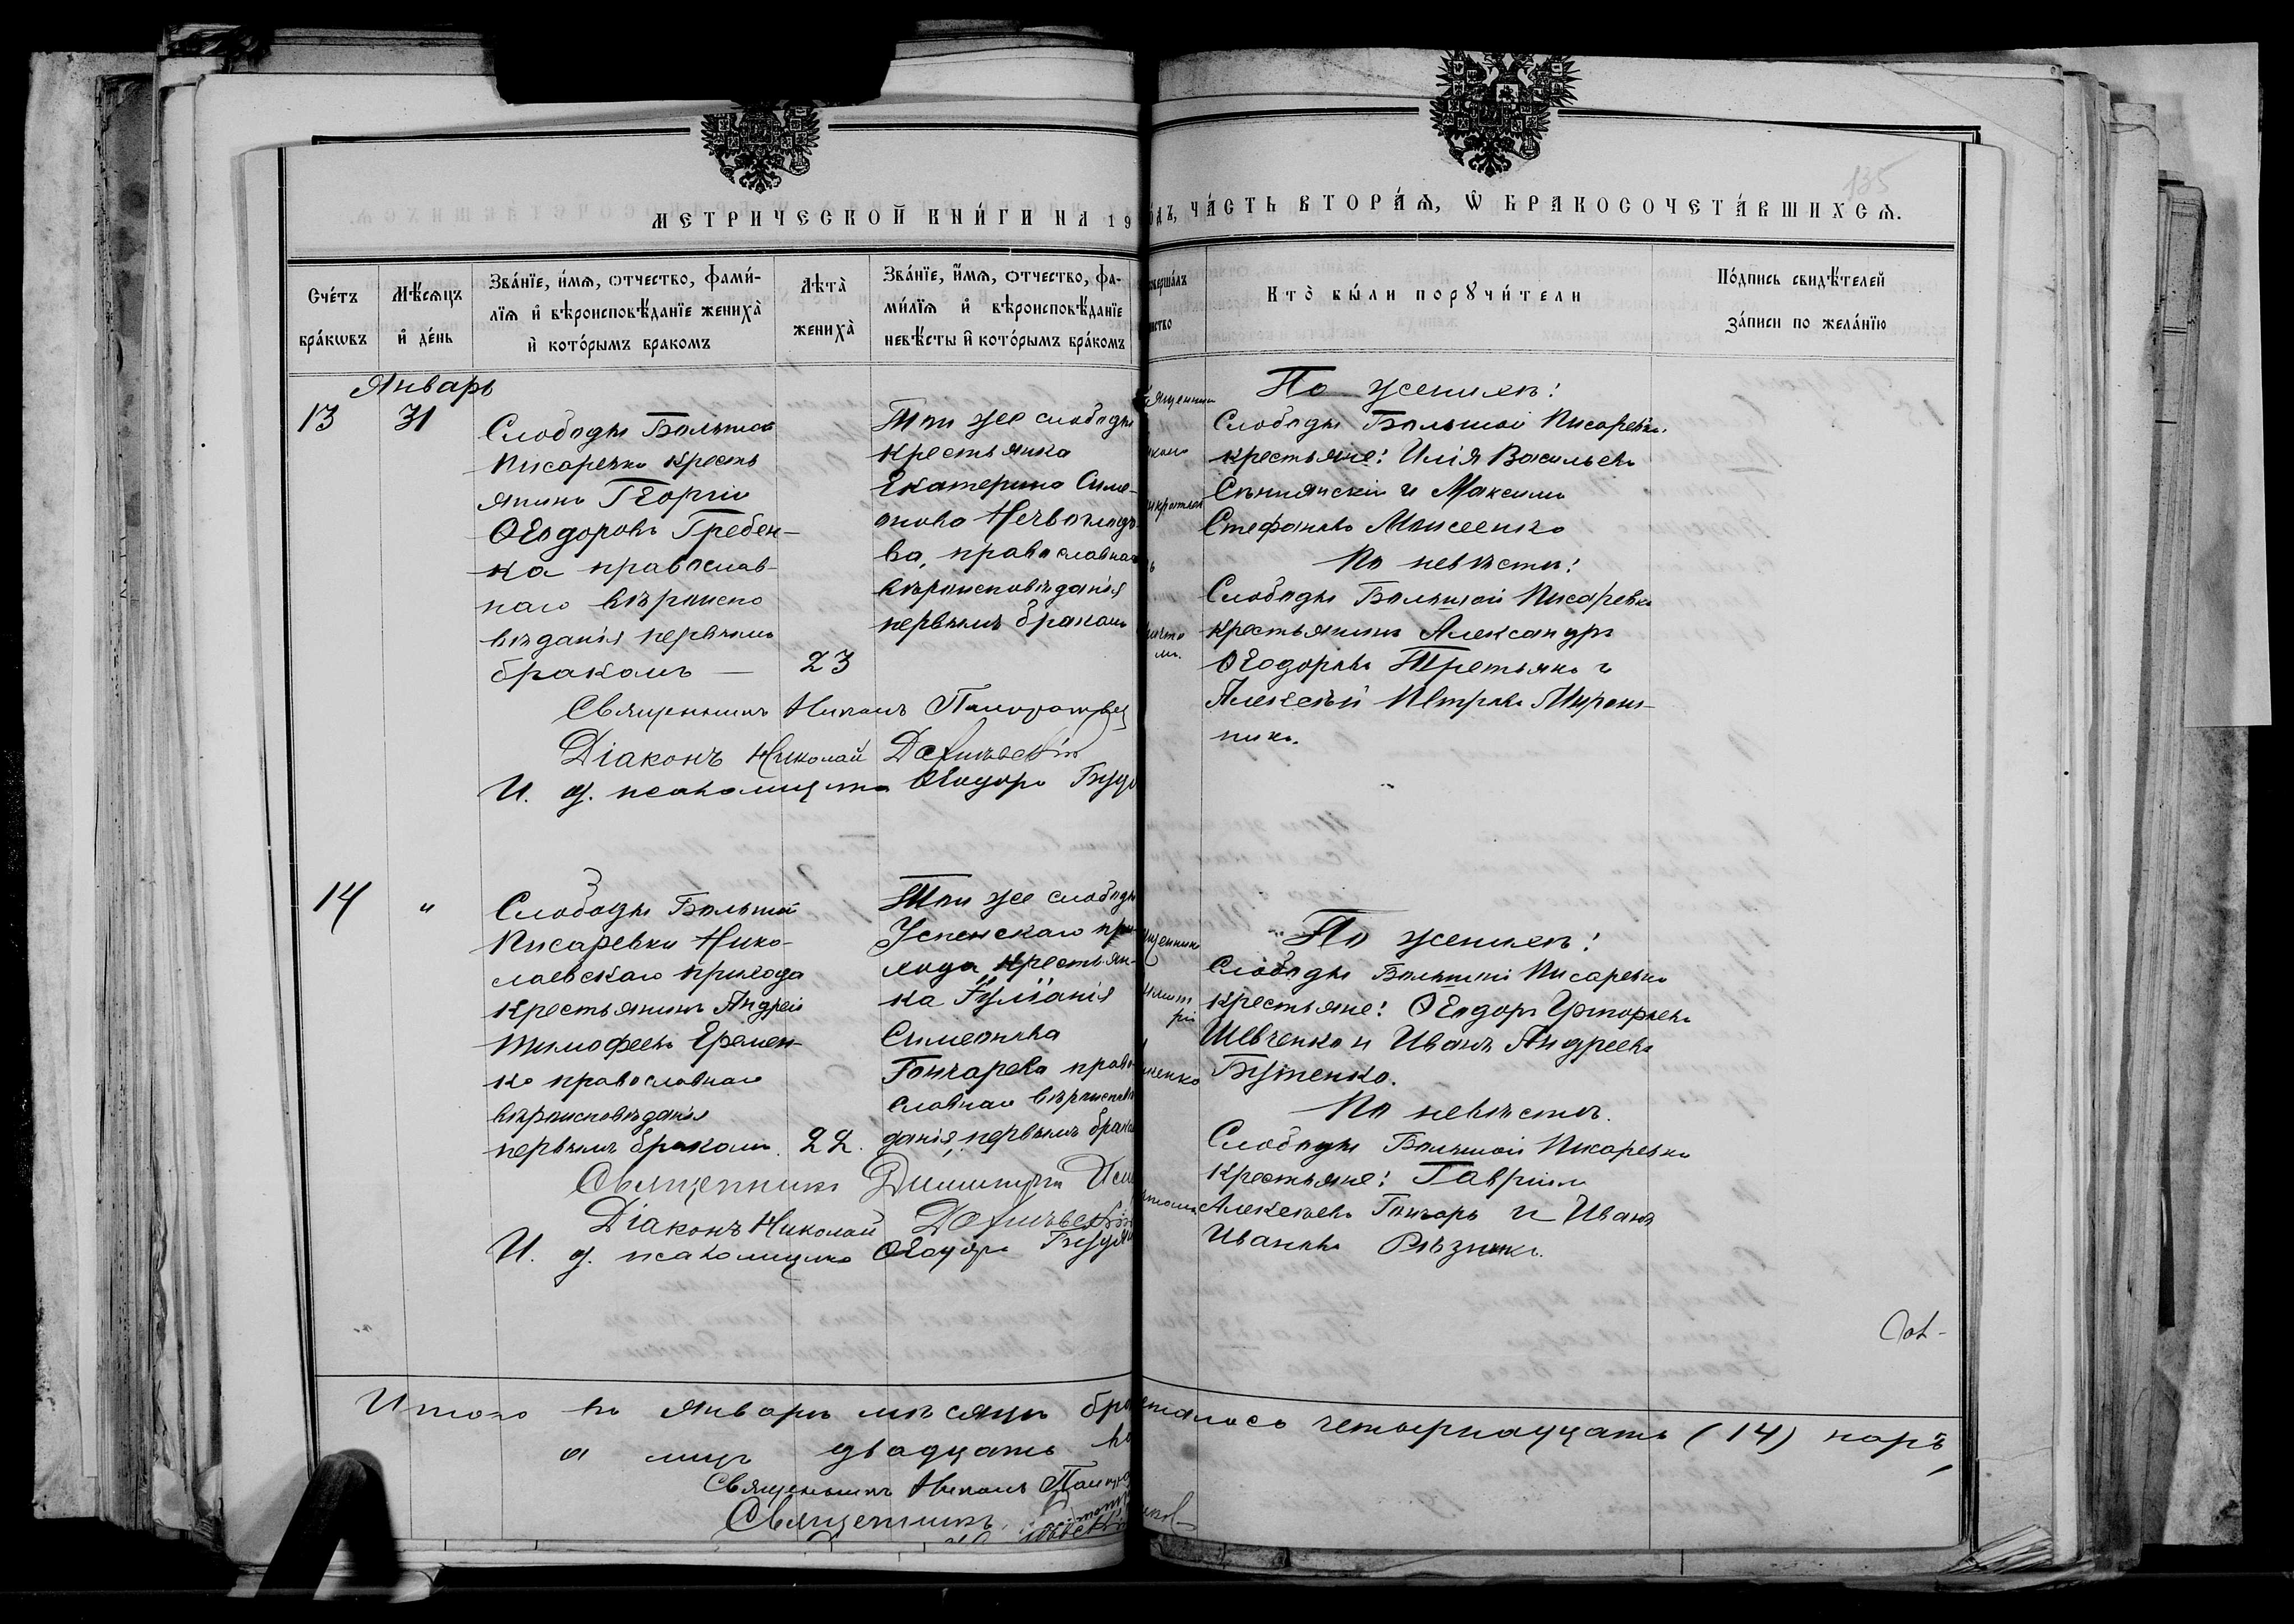 135
МЕТРИЧЕСКОЙ КНИ́ГИ НА 19
ЧА́СТЬ ВТОРА́Ѧ, Ѽ БРАКОСОЧЕТА́ВШИХСѦ.
Сче́тъ бра́кѡвъ
Мѣ́сѧцъ и҆ де́нь
Зва́нїе, и҆́мѧ, ѻтчество, фами́-
лїѧ и҆ вѣроисповѣ́данїе жениха̀
и҆ кото́рымъ бракомъ
Лѣта̀ жениха̀
Зва́нїе, и҆́мѧ, ѻтчество, фа-
ми́лїѧ и҆ вѣроисповѣ́данїе
невѣ́сты и҆ кото́рымъ бра́комъ
Кто̀ бы́ли порꙋчи́тели
По́дпись свидѣ́телей
за́писи по жела́нїю
Январь
13
31
Слободы Большой
Писаревки кресть
янинъ Георгій
Ѳеодоровъ Гребен-
ка православ-
наго вѣроиспо
вѣданія первымъ
бракомъ —
23
Той же слободы
крестьянка
Екатерина Симе-
онова
православнаго
вѣроисповѣданія
первымъ бракомъ
По женихѣ:
Слободы Большой Писаревки
крестьяне: Илія Васильевъ
и Максимъ
Стефановъ Моисеенко
По невѣстѣ:
Слободы Большой Писаревки
крестьянинъ Александръ
Ѳеодоровъ Третьякъ и
Алексѣй Петровъ Мирош-
никъ.
Священникъ
Діаконъ Николай
И. д. псаломщика Ѳеодоръ
14
"
Слободы Большой
Писаревки Нико-
лаевскаго прихода
крестьянинъ Андрей
Тимофеевъ Еремен-
ко православнаго
вѣроисповѣданія
первымъ бракомъ.
22.
Той же слободы
Успенскаго при-
хода, крестьян-
ка Іуліанія
Симеонова
Гончарева право-
славнаго вѣроисповѣ
данія, первымъ брако
По женихѣ:
Слободы Большой Писаревки
крестьяне: Ѳеодоръ Григорьевъ
Шевченко и Иванъ Андреевъ
Бутенко.
По невѣстѣ.
Слободы Большой Писаревки
крестьяне: Гавріилъ
Алексѣевъ Гончаръ и Иванъ
Ивановъ Рѣзникъ.
Священникъ Димитрій
Діаконъ Николай
И. д. псаломщика Ѳеодоръ
Итого въ январѣ мѣсяцѣ бра
четалось четырнадцать (14) паръ,
а лицъ двадцать во
Священникъ
Священникъ